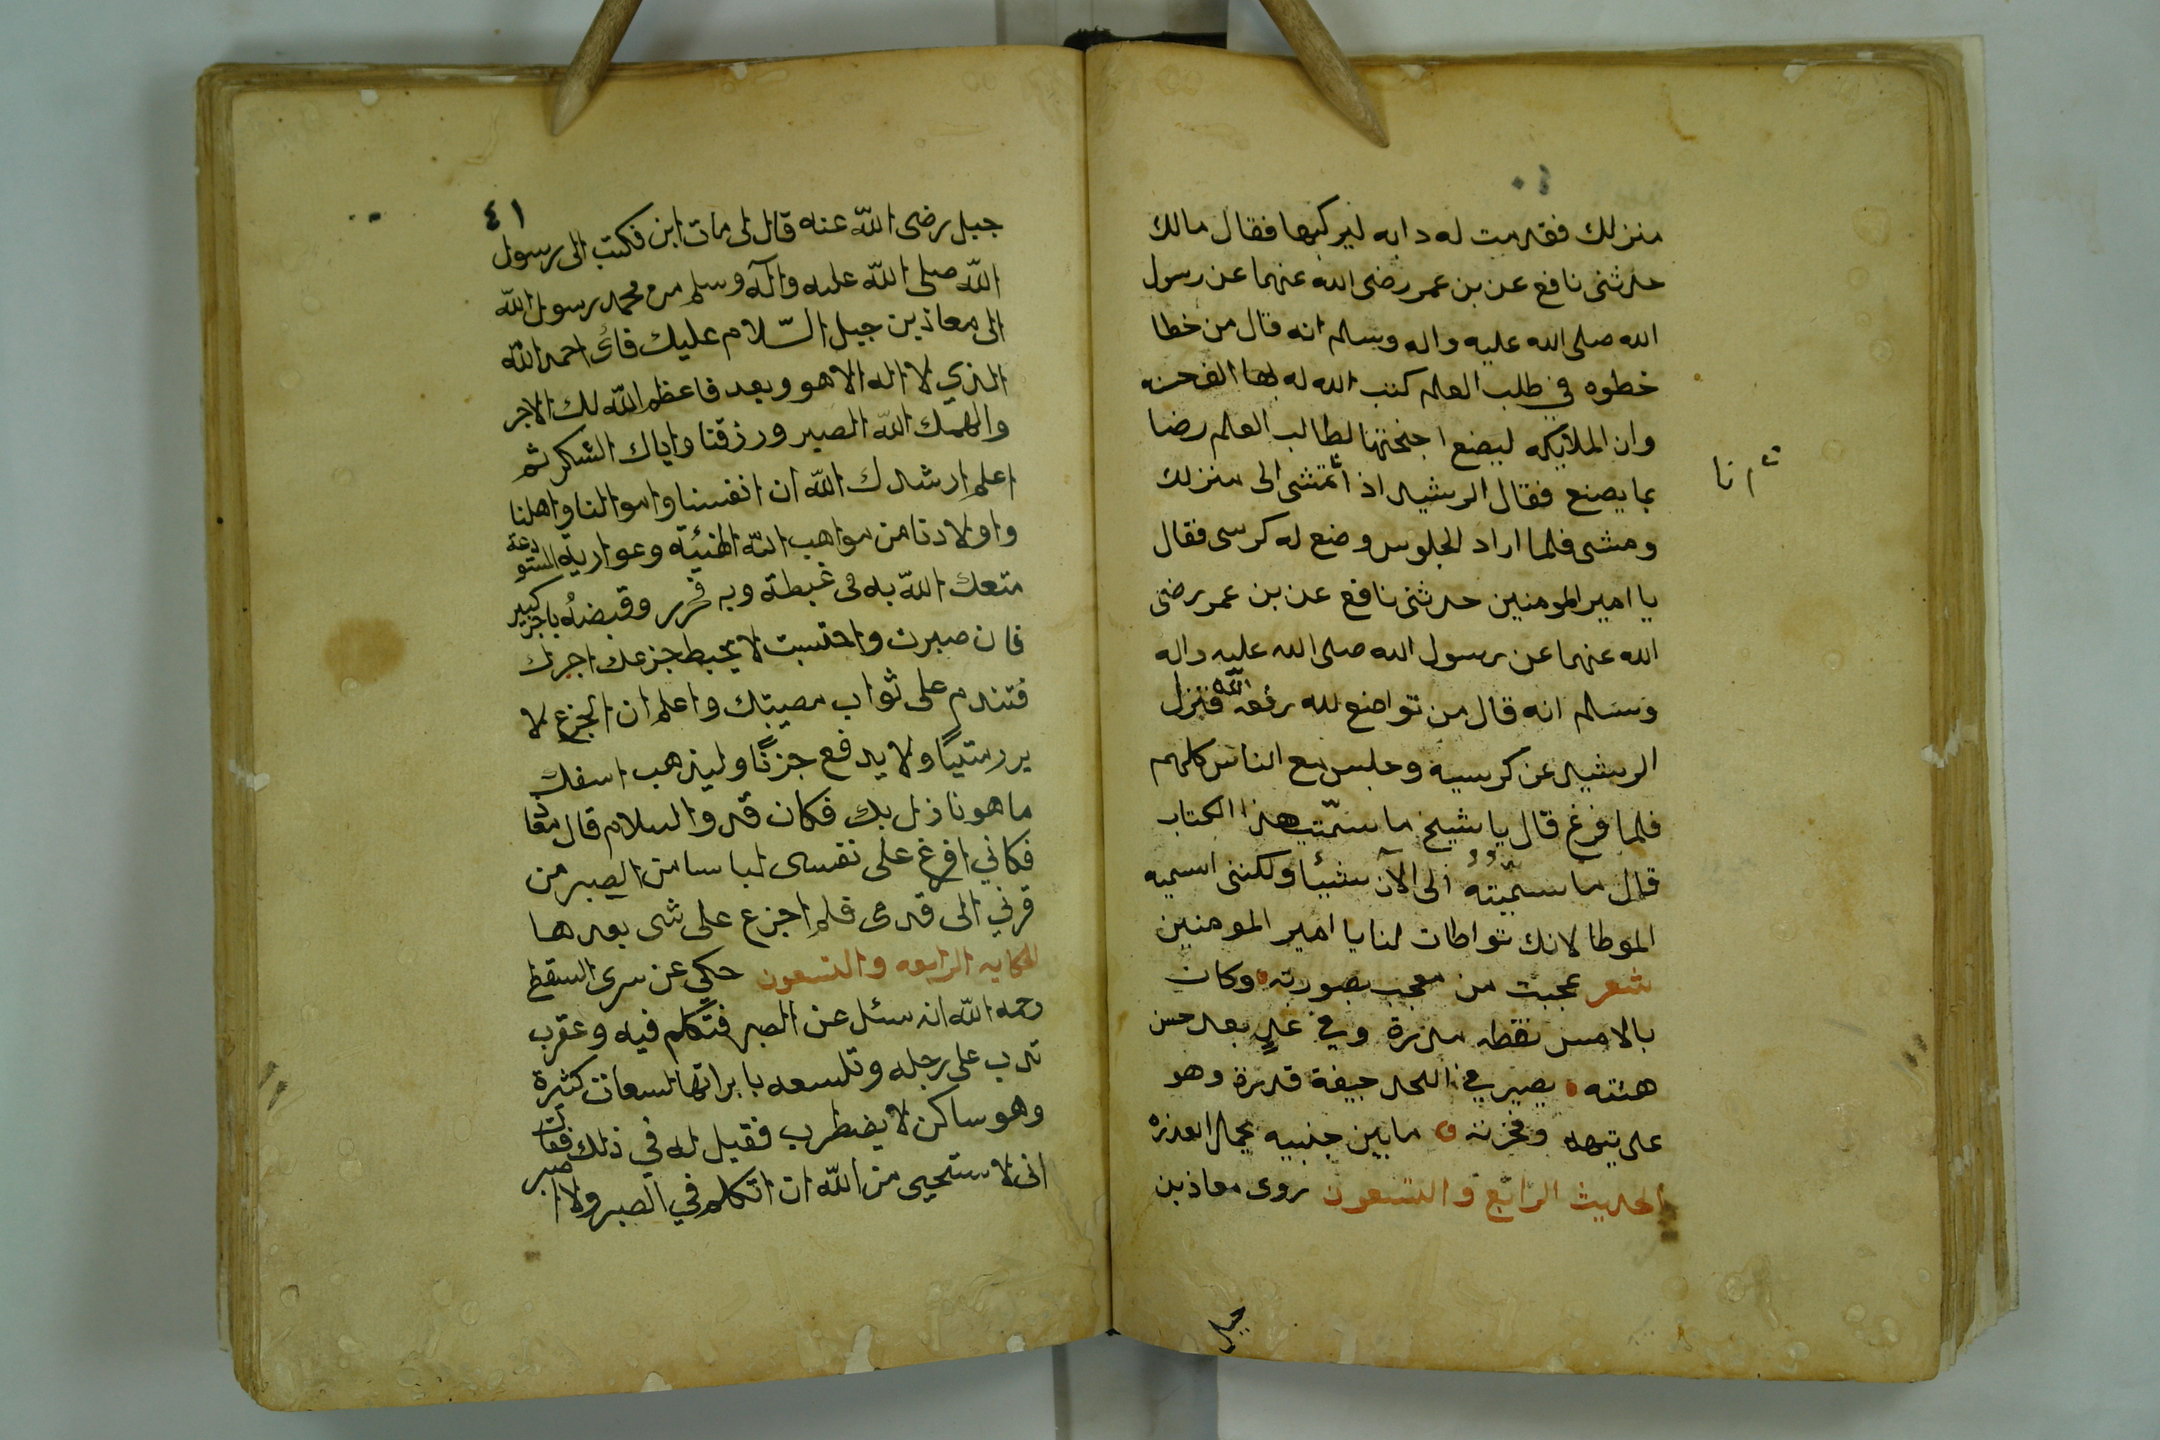 منزلك فقدمت له دابه ليركبها فقال مالك
حدثنى نافع عن بن عمر رضى الله عنهما عن رسول
الله صلى الله عليه واله وسلم انه قال من خطا
خطوه في طلب العلم كتب الله له بها الف حسنه
وان الملايكه ليضع اجنحتها لطالب العلم رضا
بما يصنع فقال الرشيد اذا نتمشى الى منزلك
ثم نا
ومشى فلما اراد الجلوس وضع له كرسى فقال
يا امير المومنين حدثنى نافع عن بن عمر رضى
الله عنهما عن رسول الله صلى الله عليه واله
وسلم انه قال من تواضع لله رفعه الله فنزل
الرشيد عن كرسيه وجلس مع الناس كلهم
فلما فرغ قال يا شيخ ما سمّيت هذا الكتاب
قال ما سمّيته الى الآن شيئا ولكننى اسميه
الموطا لانك تواطات لنا يا امير المومنين
شعر عجبت من معجب بصورته وكان
بالامس نقطه مذرة وفي غدٍ بعد حسن
هئته يصير في اللحد جيفة قذرة وهو
على تيهه وفخرته ما بين جنبيه يحمل العذره
الحديث الرابع والتسعون روى معاذ بن
جبل
٤١
جبل رضى الله عنه قال لى مات ابن فكتب الى رسول
الله صلى الله عليه وآله وسلم من محمد رسول الله
الى معاذ بن جبل السّلام عليك فانى احمد الله
الذي لا اله الا هو وبعد فاعظم الله لك الاجر
والهمك الله الصبر ورزقنا واياك الشكر ثم
اعلم ارشدك الله ان انفسنا واموالنا واهلنا
واولادنا من مواهب الله الهنيئة وعواريه المستودعة
متعك الله به في غبطة وبه فخرر وقبضهُ باجر كبير
فان صبرت واحتسبت لا يحبط جزعك اجرك
فتندم على ثواب مصيبتك واعلم ان الجزع لا
يرد ستيًا ولا يدفع حزنًا وليذهب اسفك
ما هو نازل بك فكان قد والسلام قال معاذ
فكاني افرغ على نفسى لباسا من الصبر من
قرني الى قدمى فلم اجزع على شى بعدها
الحكايه الرابعه والتسعون حكي عن سرى السقطى
رحمه الله انه سئل عن الصبر فتكلم فيه وعقرب
تدب على رجله وتلسعه بابراتها لسعات كثيرة
وهو ساكن لا يضطرب فقيل له في ذلك فقال
انى لاستحيى من الله ان اتكلم في الصبر ولا اصبر